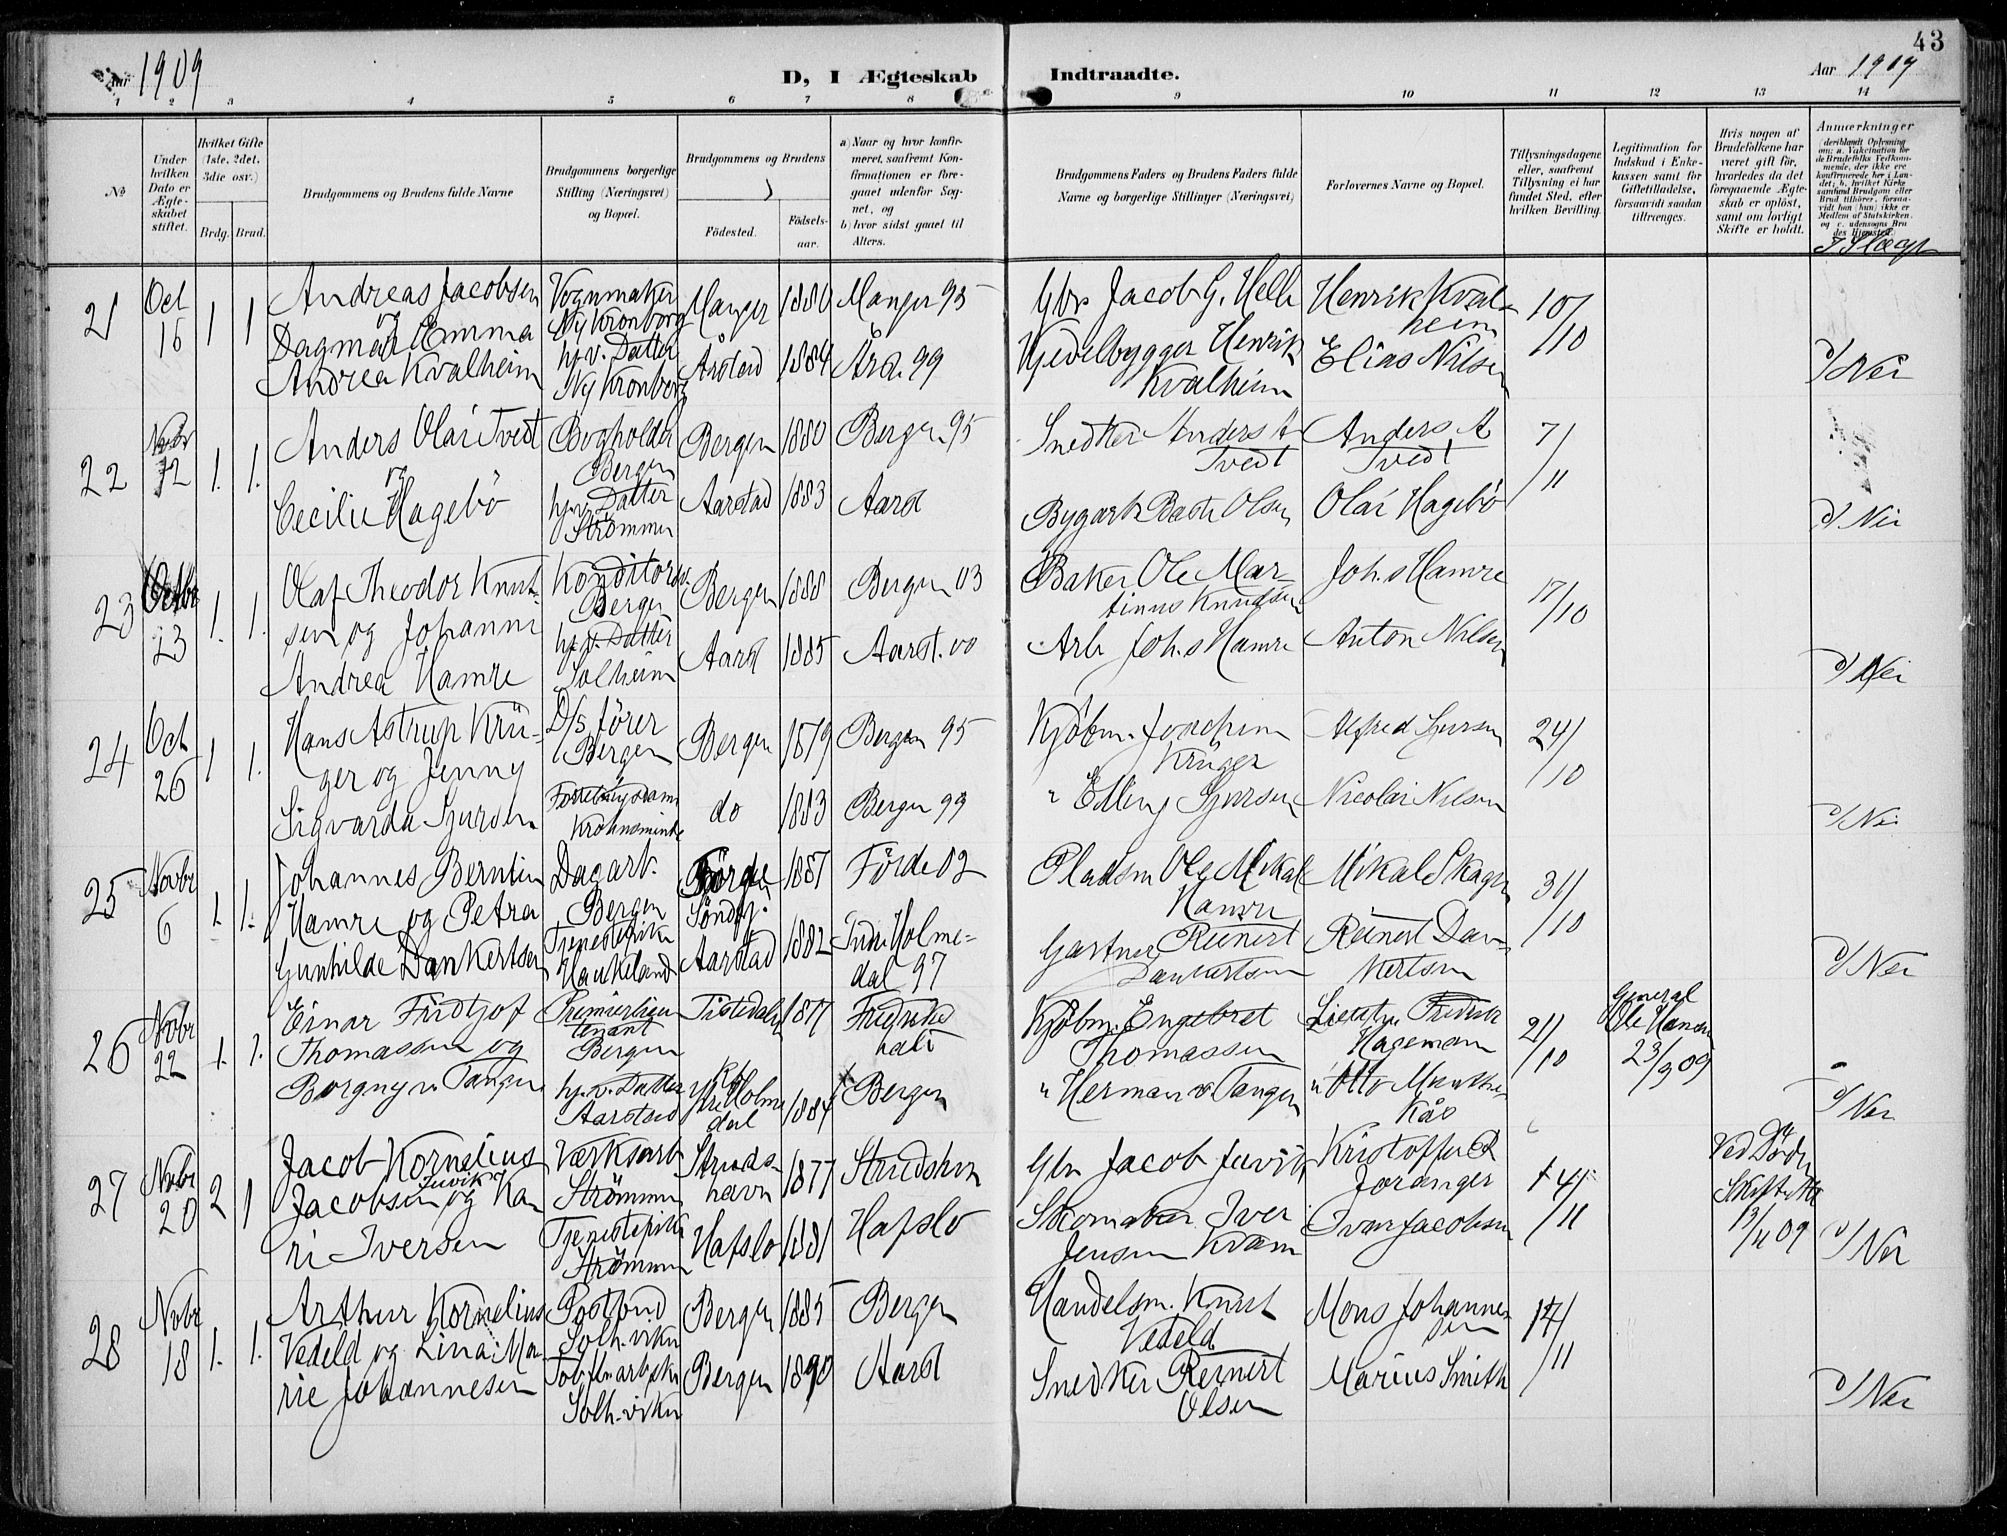 43
Aar 1909
D, I Ægteskab Indtraadte.
Aar 1909
1 2 3 4 5 6 7 8 9 10 11 12 13 14
No
Under hvilken Dato er Ægteskabet stiftet.
Hvilket Gifte (1ste, 2det, 3die osv.)
Brdg. Brud.
Brudgommens og Brudens fulde Navne
Brudgommens borgerlige Stilling (Næringsvei) og Bopæl.
Brudgommens og Brudens
Fødested.
Fødsels-aar.
a) Naar og hvor konfirmeret, saafremt Konfirmationen er foregaaet udenfor Sognet, og
b) hvor sidst gaaet til Alters.
Brudgommens Faders og Brudens Faders fulde Navne og borgerlige Stillinger (Næringsvei)
Forlovernes Navne og Bopæl.
Tillysningsdagene eller, saafremt Tillysning ei har fundet Sted, efter hvilken Bevilling.
Legitimation for Indskud i Enkekassen samt for Giftetilladelse, forsaavidt saadan tiltrænges.
Hvis nogen af Brudefolkene har været gift før, hvorledes da det foregaaende Ægteskab er opløst, samt om lovligt Skifte er holdt.
Anmærkninger (deriblandt Oplysning om: a. Vakcination for de Brudefolks Vedkommende, der ikke ere konfirmerede her i Landet; b. hvilket Kirkesamfund Brudgom eller Brud tilhører, forsaavidt han (hun) ikke er Medlem af Statskirken, og c. udensogns Brudes Hjemsted.)
21 Oct 1 1 Andreas Jacobsen Vognmaker Manger 1880 Manger 95 Gbr Jacob G. Helle Henrik Kvalheim 10/10
16 og Ny Kronborg
Dagmar Emma hj.v. Datter Årstad 1884 Års 99 Hjedelbygger Henrik Elias Nilsen
Andrea Kvalheim Ny Kronborg Kvalheim d/ Nei
22 Novbr 1. 1. Anders Olai Tvedt Bogholder Bergen 1880 Bergen 95 Snedker Anders A Anders A 7/11
12 og Bergen Tvedt Tvedt
Cecilie Hagebö hj.v. Datter Aarstad 1883 Aarst Bygarb. Baste Olsen Olai Hagebö d/ Nei
Strömmen
23 Octbr 1. 1. Olaf Theodor Knut- Konditorsv. Bergen 1888 Bergen 03 Baker Ole Mar- Joh.s Hamre 17/10
23 sen og Johanne Bergen tinus Knudsen
Andrea Hamre hj.v. Datter Aarst 1885 Aarst. 00 Arb Joh.s Hamre Anton Nilsen
Solheim d/ Nei
24 Oct 1 1. Hans Astrup Krü- D/s förer Bergen 1879 Bergen 95 Kjöbm. Joachim Alfred Sjursen 24/10
26 ger og Jenny Bergen Krüger
Sigvarda Sjursen Krohnsminde do 1883 Bergen 99 " Edling Sjursen Nicolai Nilsen d/ Nei
25 Novbr 1. 1. Johannes Berntin Dagarb. Förde 1887 Förde 02 Pladsm Ole Mikal Mikal Skagen 31/10
6 Hamre og Petra Bergen Söndfj. Hamre
Gunhilde Dankertsen Tjenestepike Aarstad 1882 Indre Holme- Gartner Reinert Reinert Dan-
Haukeland dal 97 Dankertsen kertsen d/ Nei
26 Novbr 1. 1. Einar Fridtjof Premierlieu- Tistedalen 1877 Fredriks- Kjöbm. Engebret Fredrik 21/10 General Ole Hansen
22 Thomassen og tenant hald Thomassen Hageman 23/9 09
Borgny v. Tangen Bergen
hj.v. Datter Holme- 1884 Bergen " Herman v Tangen " Otto Munthe-
Aarstad dal Kås d/ Nei
27 Novbr 2 1 Jacob Kornelius Værksarb Struds- 1877 Strudshavn Gbr Jacob Juvik Kristoffer R 14/11 Ved Död
20 Juvik
Jacobsen og Ka- Strömmen havn Joranger
ri Iversen Tjenestepike Hafslo 1881 Hafslo Skomaker Iver Ivar Jacobsen 13/11 09
Strömmen Jensen Kvam d/ Nei
28 Novbr 1. 1. Arthur Kornelius Postbud Bergen 1885 Bergen Handelsm. Knut Mons Johannes- 14/11
18 Vedeld og Lina Ma- Solh.viken Vedeld sen
rie Johannesen Bergen 1890 Aarst Snedker Reinert Marius Smith
Solh.viken Olsen d/ Nei